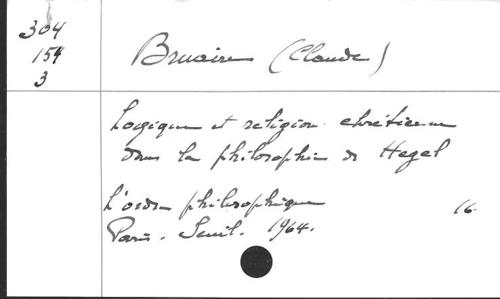 304
154
3
Bruaire (Claude)
Logique et religion chrétienne
dans la philosophie de Hegel
L'ordre philosophique 16
Paris. Seuil. 1964.